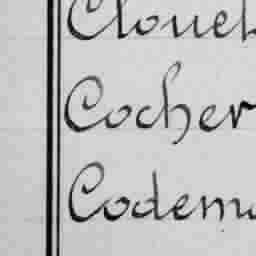 Clouet
Cocher
Codemu